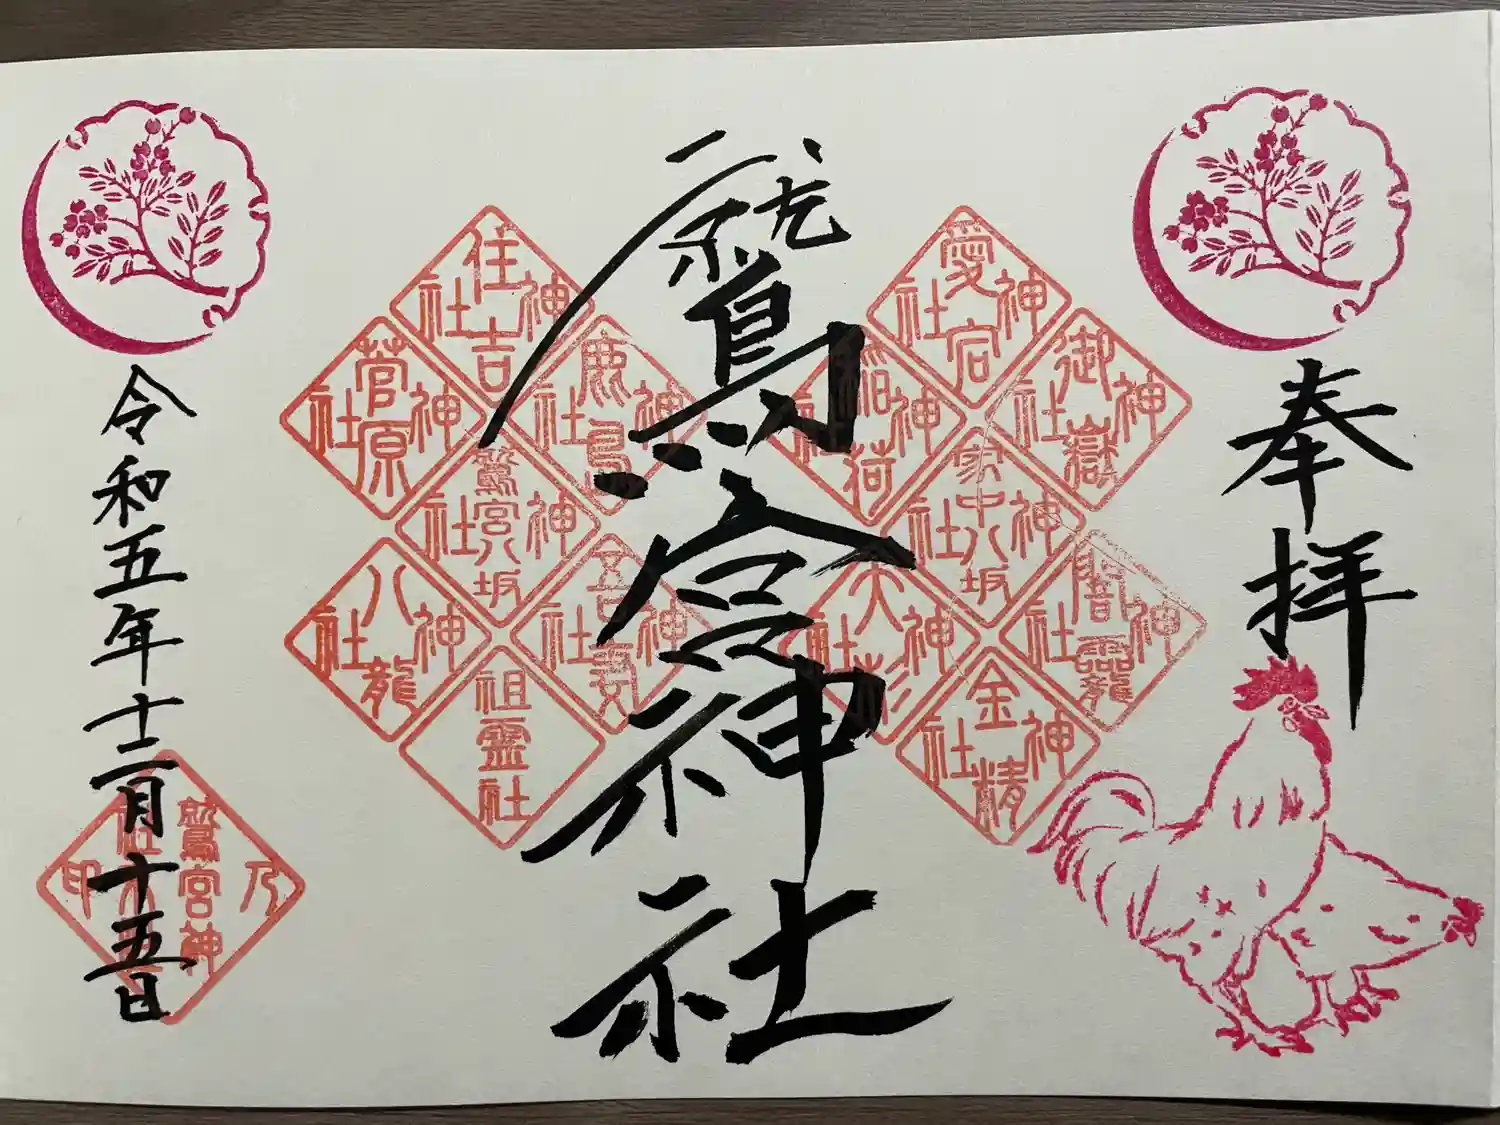 奉拝
愛宕神社
御嶽神社
稲荷神社
家中八坂神社
闇龗神社
大杉神社
金精神社
鷲宮神社
住吉神社
鹿島神社
菅原神社
鷲宮八坂神社
吾妻神社
八龍神社
祖霊社
令和五年十二月十五日
鷲宮神